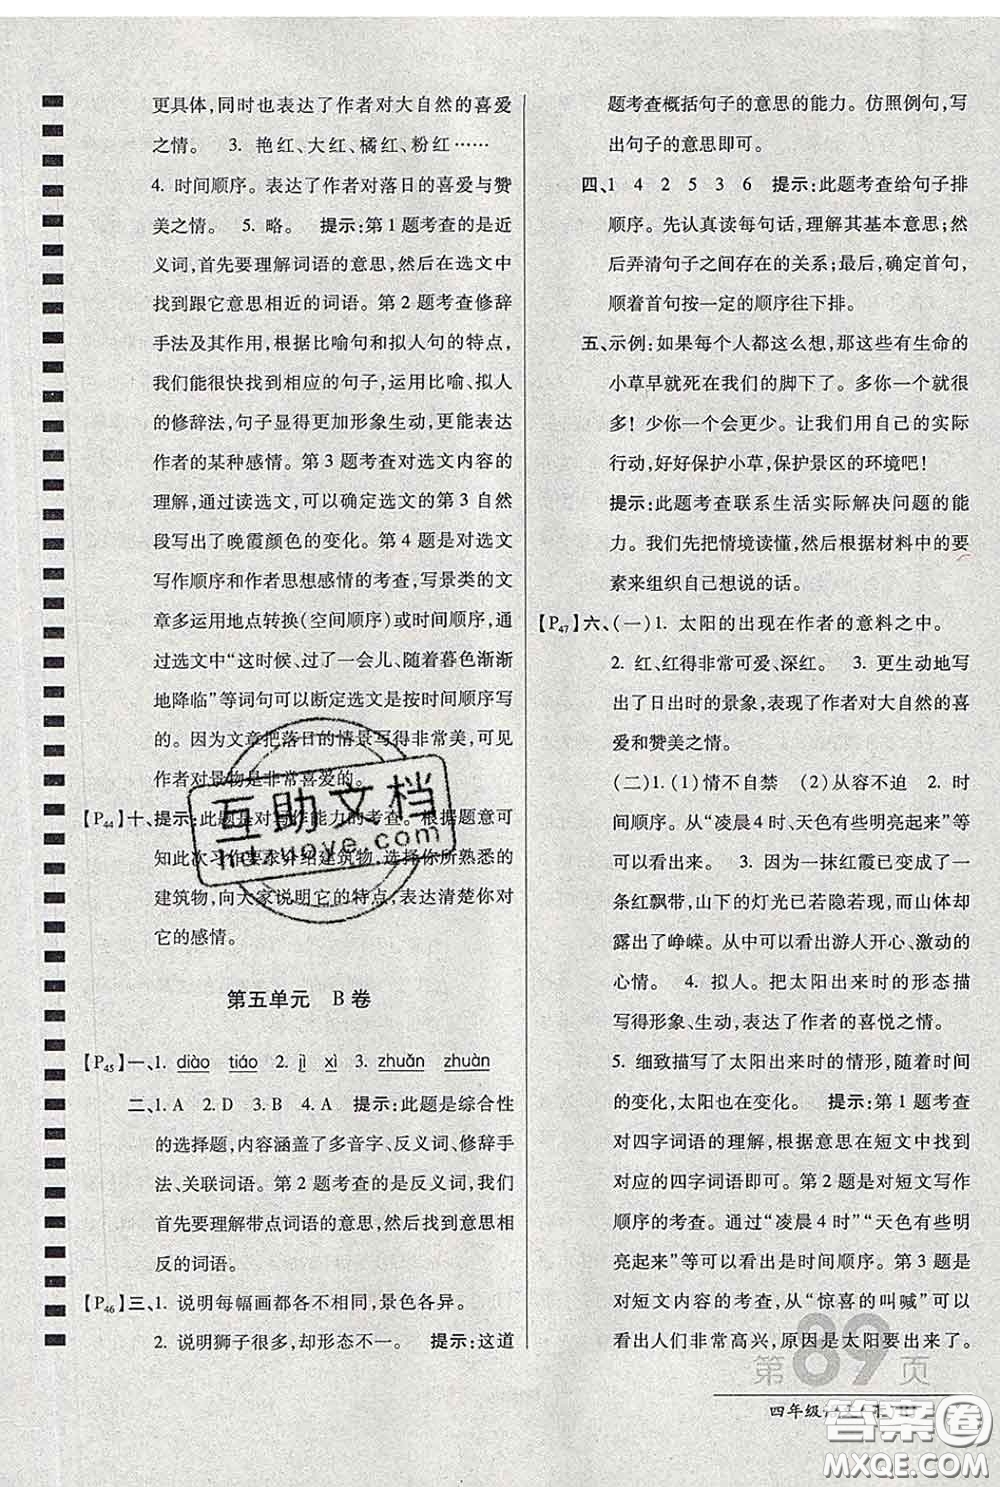 更具体,同时也表达了作者对大自然的喜爱
之情。 3. 艳红、大红、橘红、粉红……
4. 时间顺序。表达了作者对落日的喜爱与赞
美之情。 5. 略。 提示:第1题考查的是近
义词,首先要理解词语的意思,然后在选文中
找到跟它意思相近的词语。第2题考查修辞
手法及其作用,根据比喻句和拟人句的特点,
我们能很快找到相应的句子,运用比喻、拟人
的修辞法,句子显得更加形象生动,更能表达
作者的某种感情。第3题考查对选文内容的
理解,通过读选文,可以确定选文的第3自然
段写出了晚霞颜色的变化。第4题是对选文
写作顺序和作者思想感情的考查,写景类的文
章多运用地点转换(空间顺序)或时间顺序,通
过选文中“这时候、过了一会儿、随着暮色渐渐
地降临”等词句可以断定选文是按时间顺序写
的。因为文章把落日的情景写得非常美,可见
作者对景物是非常喜爱的。
【P44】十、提示:此题是对写作能力的考查。根据题意可
知此次习作要求介绍建筑物,选择你所熟悉的
建筑物,向大家说明它的特点,表达清楚你对
它的感情。
第五单元 B卷
【P45】一、1. diào tiáo 2. jì xì 3. zhuǎn zhuàn
二、1. A 2. D 3. B 4. A 提示:此题是综合性
的选择题,内容涵盖了多音字、反义词、修辞手
法、关联词语。第2题考查的是反义词,我们
首先要理解带点词语的意思,然后找到意思相
反的词语。
【P46】三、1. 说明每幅画都各不相同,景色各异。
2. 说明狮子很多,却形态不一。 提示:这道
题考查概括句子的意思的能力。仿照例句,写
出句子的意思即可。
四、1 4 2 5 3 6 提示:此题考查给句子排
顺序。先认真读每句话,理解其基本意思;然
后弄清句子之间存在的关系;最后,确定首句,
顺着首句按一定的顺序往下排。
五、示例:如果每个人都这么想,那这些有生命的
小草早就死在我们的脚下了。多你一个就很
多!少你一个会更少。让我们用自己的实际
行动,好好保护小草,保护景区的环境吧!
提示:此题考查联系生活实际解决问题的能
力。我们先把情境读懂,然后根据材料中的要
素来组织自己想说的话。
【P47】六、(一)1. 太阳的出现在作者的意料之中。
2. 红、红得非常可爱、深红。 3. 更生动地写
出了日出时的景象,表现了作者对大自然的喜
爱和赞美之情。
(二)1.(1)情不自禁 (2)从容不迫 2. 时
间顺序。从“凌晨4时、天色有些明亮起来”等
可以看出来。 3. 因为一抹红霞已变成了一
条红飘带,山下的灯光已若隐若现,而山体却
露出了峥嵘。从中可以看出游人开心、激动的
心情。 4. 拟人。把太阳出来时的形态描
写得形象、生动,表达了作者的喜悦之情。
5. 细致描写了太阳出来时的情形,随着时间
的变化,太阳也在变化。 提示:第1题考查
对四字词语的理解,根据意思在短文中找到
对应的四字词语。第2题是对短文写作
顺序的考查。通过“凌晨4时”“天色有些明
亮起来”等可以看出是时间顺序。第3题是
对短文内容的考查,从“惊喜的叫喊”可以
看出人们非常高兴,原因是太阳要出来了。
第89页
四年级
互助文档
hdzuoye.com
答案圈
MXQE.COM